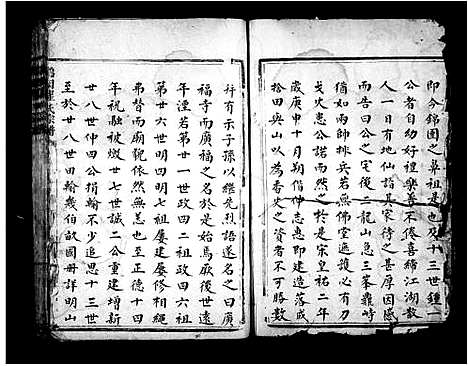 即今錦園之鼻祖是也及十三世鍾一
公者自幼好禮樂善不倦喜締江湖散
人一日有地仙諳其宏儔待之甚厚因感
而告公曰公之宅後二龍山急三峯巍峙
猶如兩帥挑兵若無佛堂遮護必有刀
戈火患公諾而然之於是宋皇祐二年
歲庚申十月朔偕仲志惠即建造落成
拾田與山以為香火之資者不可勝數
抖有示子孫以繼先烈語遂名之曰廣
福寺而廣福之名於是始焉厥後世遠
年湮若第廿一世政四二祖政四六祖
第廿六世明四明廿屢建屢修相繩
弗替而廟貌依然無恙也至順德十四
年祝融被燬廿七世誠二公重建增新
廿八世仲四公捐輸不少追思十三世
至於廿八世田輸幾伯畝圖冊詳明山